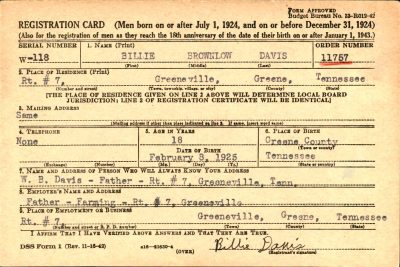 FORM APPROVED
Budget Bureau No. 33-R019-42
REGISTRATION CARD (Men born on or after July 1, 1924, and on or before December 31, 1924)
(Also for the registration of men as they reach the 18th anniversary of the date of their birth on or after January 1, 1943.)
SERIAL NUMBER 1. NAME (Print) ORDER NUMBER
W-118 BILLIE BROWNLOW DAVIS 11757
(First) (Middle) (Last)
2. PLACE OF RESIDENCE (Print)
Rt. # 7, Greeneville, Greene, Tennessee
(Number and street) (Town, township, village, or city) (County) (State)
[THE PLACE OF RESIDENCE GIVEN ON LINE 2 ABOVE WILL DETERMINE LOCAL BOARD
JURISDICTION; LINE 2 OF REGISTRATION CERTIFICATE WILL BE IDENTICAL]
3. MAILING ADDRESS
Same
[Mailing address if other than place indicated on line 2. If same, insert word same]
4. TELEPHONE 5. AGE IN YEARS 6. PLACE OF BIRTH
None 18 Greene County
DATE OF BIRTH (Town or county)
February 8, 1925 Tennessee
(Exchange) (Number) (Mo.) (Day) (Yr.) (State or country)
7. NAME AND ADDRESS OF PERSON WHO WILL ALWAYS KNOW YOUR ADDRESS
W. B. Davis - Father - Rt. # 7, Greeneville, Tenn.
8. EMPLOYER'S NAME AND ADDRESS
Father - Farming - Rt. # 7, Greeneville
9. PLACE OF EMPLOYMENT OR BUSINESS
Rt. # 7, Greeneville, Greene, Tennessee
(Number and street or R. F. D. number) (Town) (County) (State)
I AFFIRM THAT I HAVE VERIFIED ABOVE ANSWERS AND THAT THEY ARE TRUE.
DSS Form 1 (Rev. 11-16-42) (OVER) Billie Davis
(Registrant's signature)